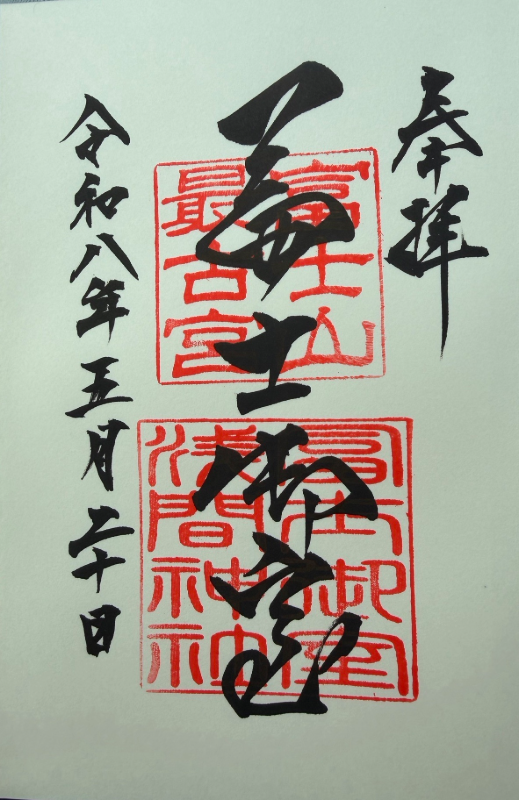 奉拝
富士山
最古宮
富士御室
冨士御室
浅間神社
令和八年五月二十日